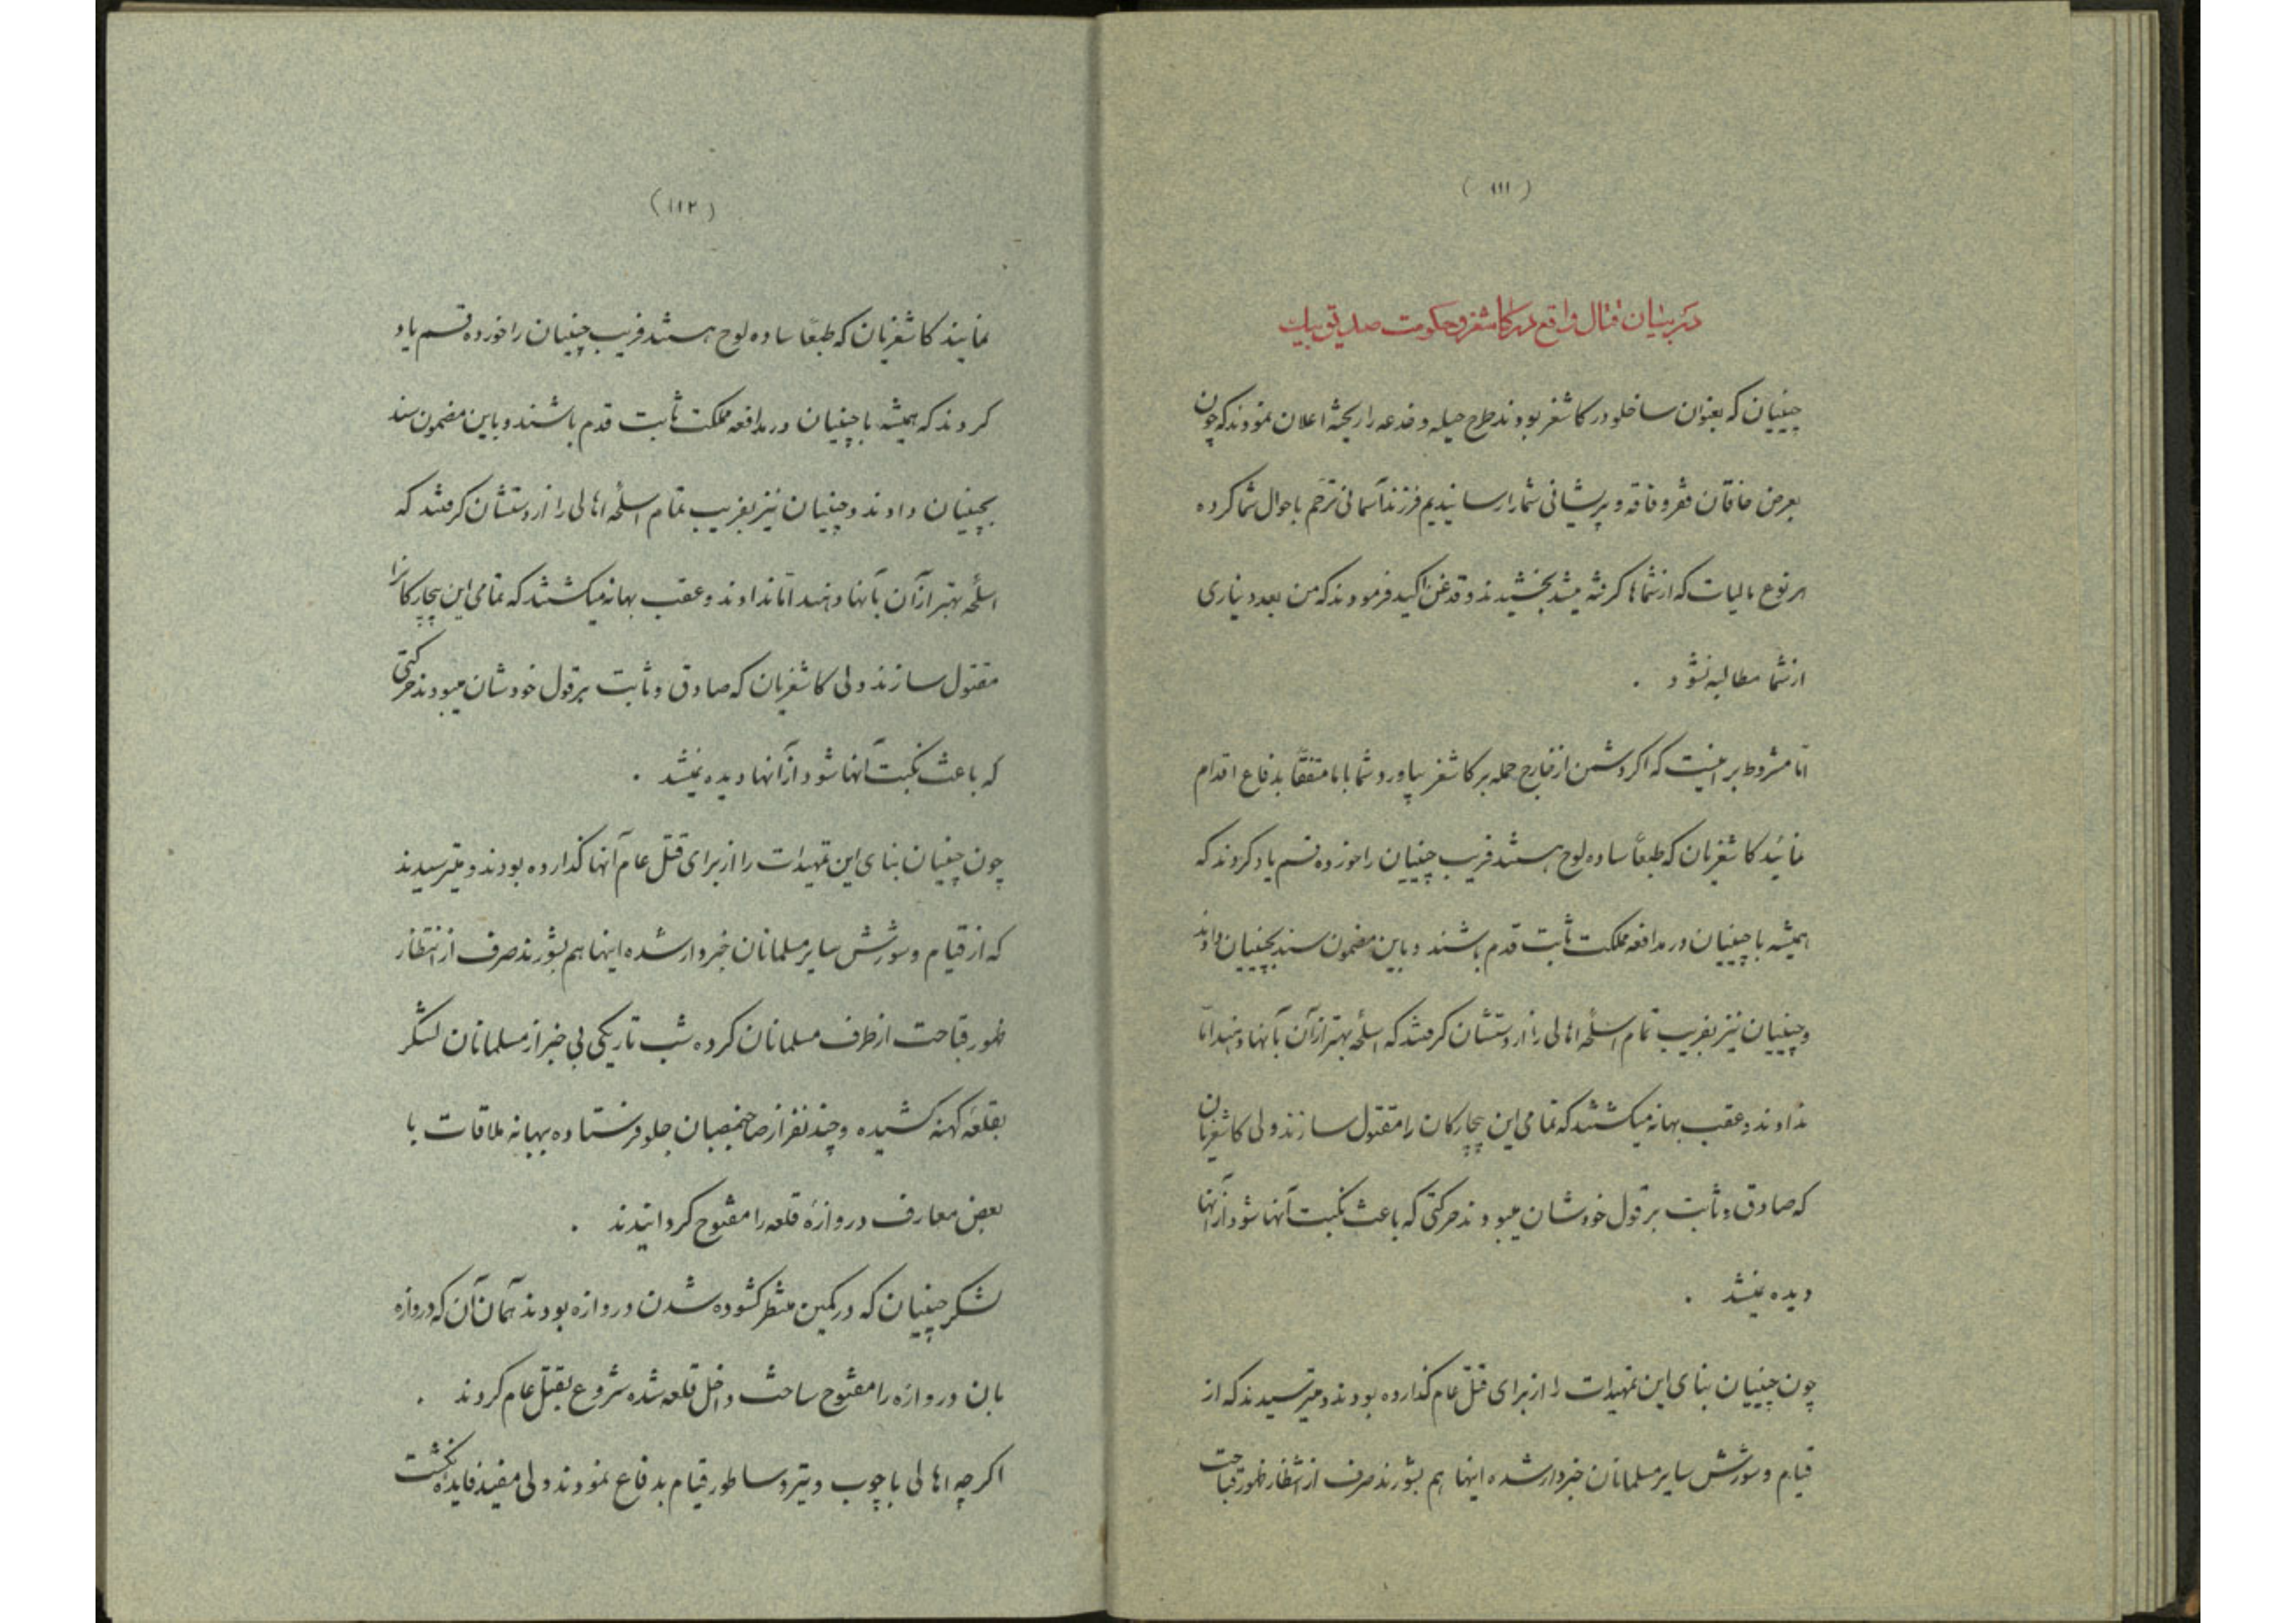 (۱۱۱)
در بیان قتال واقع در کاشغر و حکومت صدیق بیک
چینیان که بعنوان ساخلو در کاشغر بودند طرح حیله و خدعه را ریخته اعلان نمودند که چون
بعرض خاقان فقر و فاقه و پریشانی شما را رسانیدیم فرزند آسمانی ترحّم باحوال شما کرده
هر نوع مالیات که از شماها گرفته میشد بخشیدند و قدغن اکید فرمودند که من بعد دیناری
از شما مطالبه نشود .
امّا مشروط بر اینست که اگر دشمن از خارج حمله بر کاشغر بیاورد شما با ما متفقاً بدفاع اقدام
نمائید کاشغریان که طبعاً ساده لوح هستند فریب چینیان را خورده قسم یاد کردند که
همیشه با چینیان در مدافعه مملکت ثابت قدم باشند و باین مضمون سند بچینیان دادند
و چینیان نیز بفریب تمام اسلحه اهالی را از دستشان گرفتند که اسلحه بهتر از آن بآنها دهند امّا
ندادند و عقب بهانه میگشتند که تمامی این بیچارگان را مقتول سازند ولی کاشغریان
که صادق و ثابت بر قول خودشان میبودند حرکتی که باعث نکبت آنها شود از آنها
دیده نمیشد .
چون چینیان بنای این تمهیدات را از برای قتل عام گذارده بودند و میترسیدند که از
قیام و شورش سایر مسلمانان خبردار شده اینها هم بشورند صرف از انتظار ظهور قباحت
(۱۱۲)
نمایند کاشغریان که طبعاً ساده لوح هستند فریب چینیان را خورده قسم یاد
کردند که همیشه با چینیان در مدافعه مملکت ثابت قدم باشند و باین مضمون سند
بچینیان دادند و چینیان نیز بفریب تمام اسلحه اهالی را از دستشان گرفتند که
اسلحه بهتر از آن بآنها دهند امّا ندادند و عقب بهانه میگشتند که تمامی این بیچارگانرا
مقتول سازند ولی کاشغریان که صادق و ثابت بر قول خودشان میبودند حرکتی
که باعث نکبت آنها شود از آنها دیده نمیشد .
چون چینیان بنای این تمهیدات را از برای قتل عام آنها گذارده بودند و میترسیدند
که از قیام و شورش سایر مسلمانان خبردار شده اینها هم بشورند صرف از انتظار
ظهور قباحت از طرف مسلمانان کرده شب تاریکی بی خبر از مسلمانان لشگر
بقلعه کهنه کشیده و چند نفر از صاحبمنصبان جلو فرستاده ببهانه ملاقات با
بعض معارف دروازه قلعه را مفتوح گردانیدند .
لشکر چینیان که در کمین منتظر گشوده شدن دروازه بودند همان آن که دروازه
بان دروازه را مفتوح ساخت داخل قلعه شده شروع بقتل عام کردند .
اگرچه اهالی با چوب و تیر و ساطور قیام بدفاع نمودند ولی مفید فایده نگشت